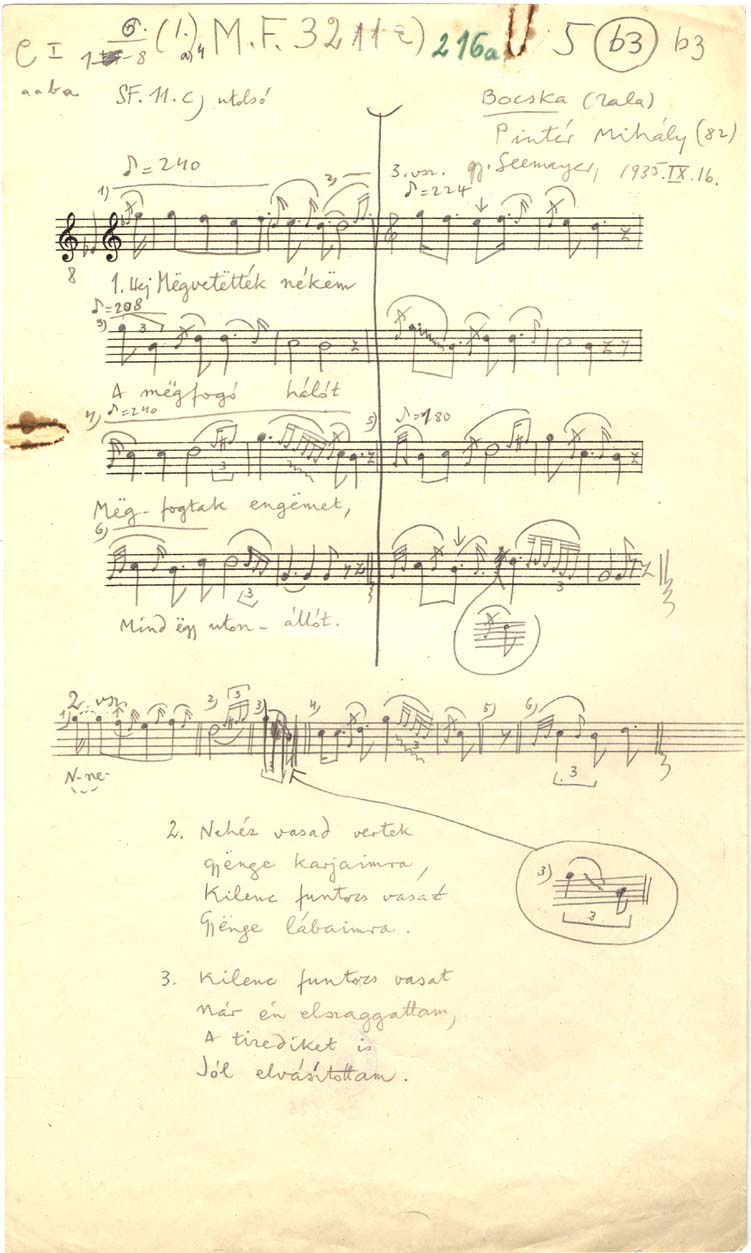 C I
6.
(1.) M.F. 3211 c) 216a 5 (b3) b3
a a b a
SF. 11. c) utolsó
Bocska (Zala)
Pintér Mihály (82)
gy. Seemayer, 1935. IX. 16.
♪=240
1)
2)
3. vsz.
♪=224
8
1. Hej Mëgvetëtték nékëm
♪=208
3)
3
A mëgfogó hálót
4)
♪=240
5)
♪=180
3
Mëg-fogtak engëmet,
6)
3
3
Mind ëgy uton-állót.
2. vsz.
1)
2)
3
3)
4)
5)
6)
N-ne-
3
3
2. Nehéz vasad vertek
gyënge karjaimra,
Kilenc funtozs vasat
Gyënge lábaimra.
3)
3
3. Kilenc funtozs vasat
Már én elszaggattam,
A tizediket is
Jól elvásítottam.